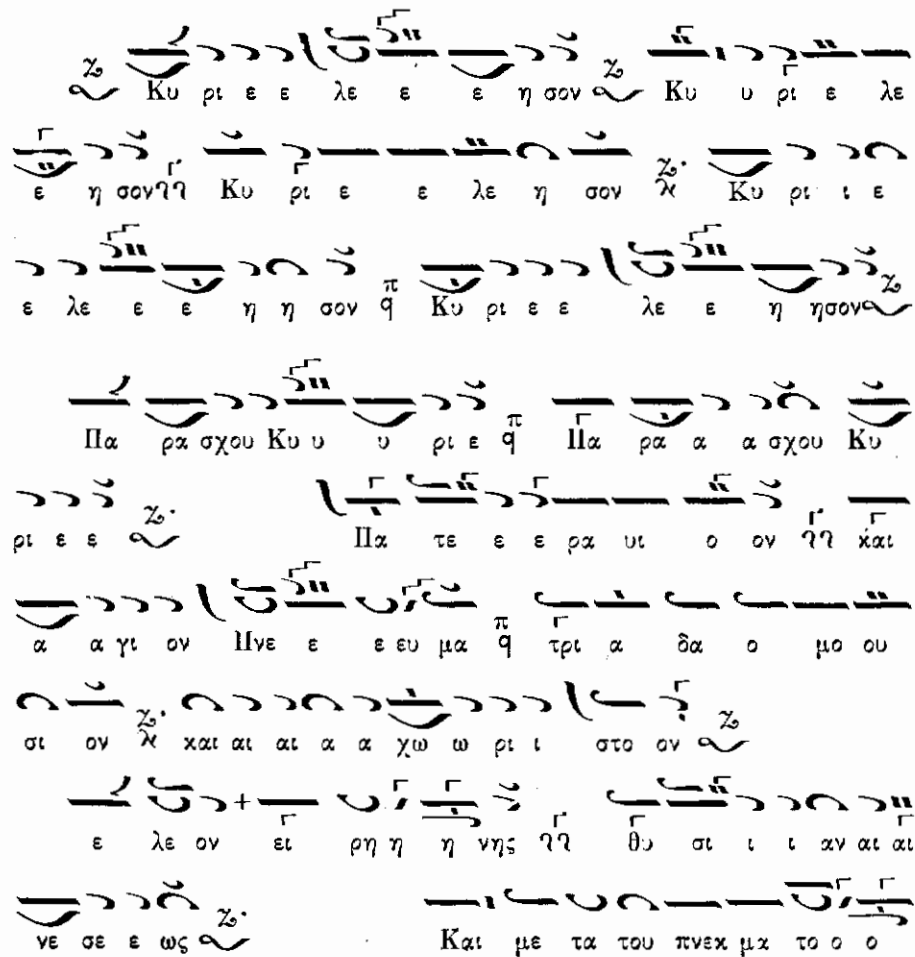 Κυ ρι ε ε λε ε ε η σον Κυ υ ρι ε λε
ε η σον Κυ ρι ε ε λε η σον Κυ ρι ι ε
ε λε ε ε η η σον Κυ ρι ε ε λε ε η ησον
Πα ρα σχου Κυ υ υ ρι ε Πα ρα α α σχου Κυ
ρι ε ε Πα τε ε ε ρα υι ο ον και
α α γι ον Πνε ε ε ευ μα τρι α δα ο μο ου
σι ον και αι αι α α χω ω ρι ι στο ον
ε λε ον ει ρη η η νης θυ σι ι ι αν αι αι
νε σε ε ως Και με τα του πνεκ μα το ο ο